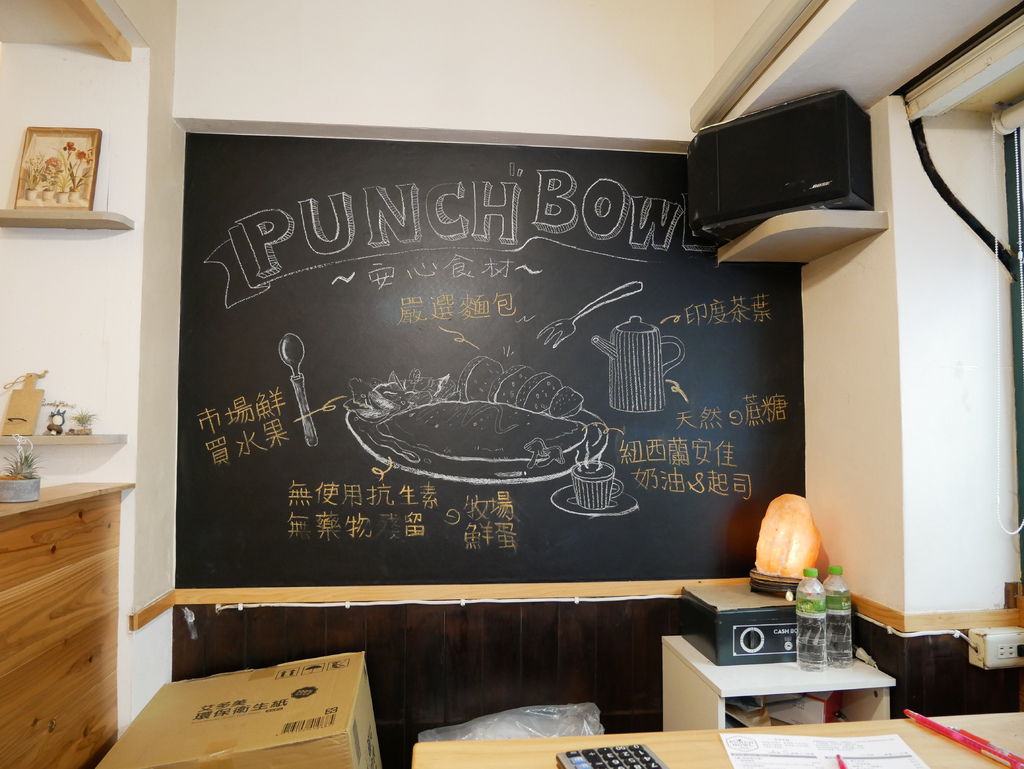 PUNCH BOWL
~安心食材~
嚴選麵包
印度茶葉
市場鮮
買水果
天然の蔗糖
紐西蘭安佳
奶油&起司
無使用抗生素
無藥物殘留
の牧場
鮮蛋
BOSE
CASH BO
艾多美
環保衛生紙